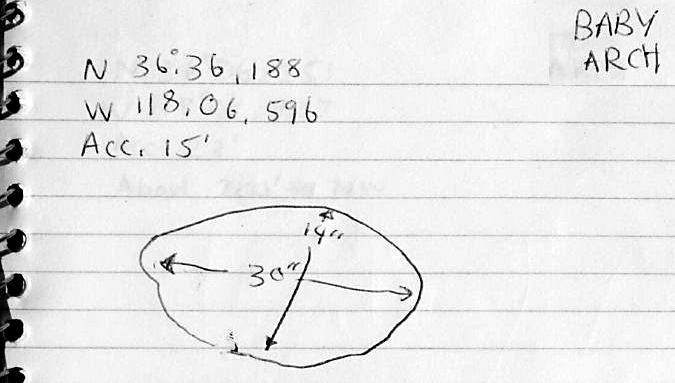 BABY
ARCH
N 36°.36,188
W 118.06.596
Acc. 15'
14"
30"